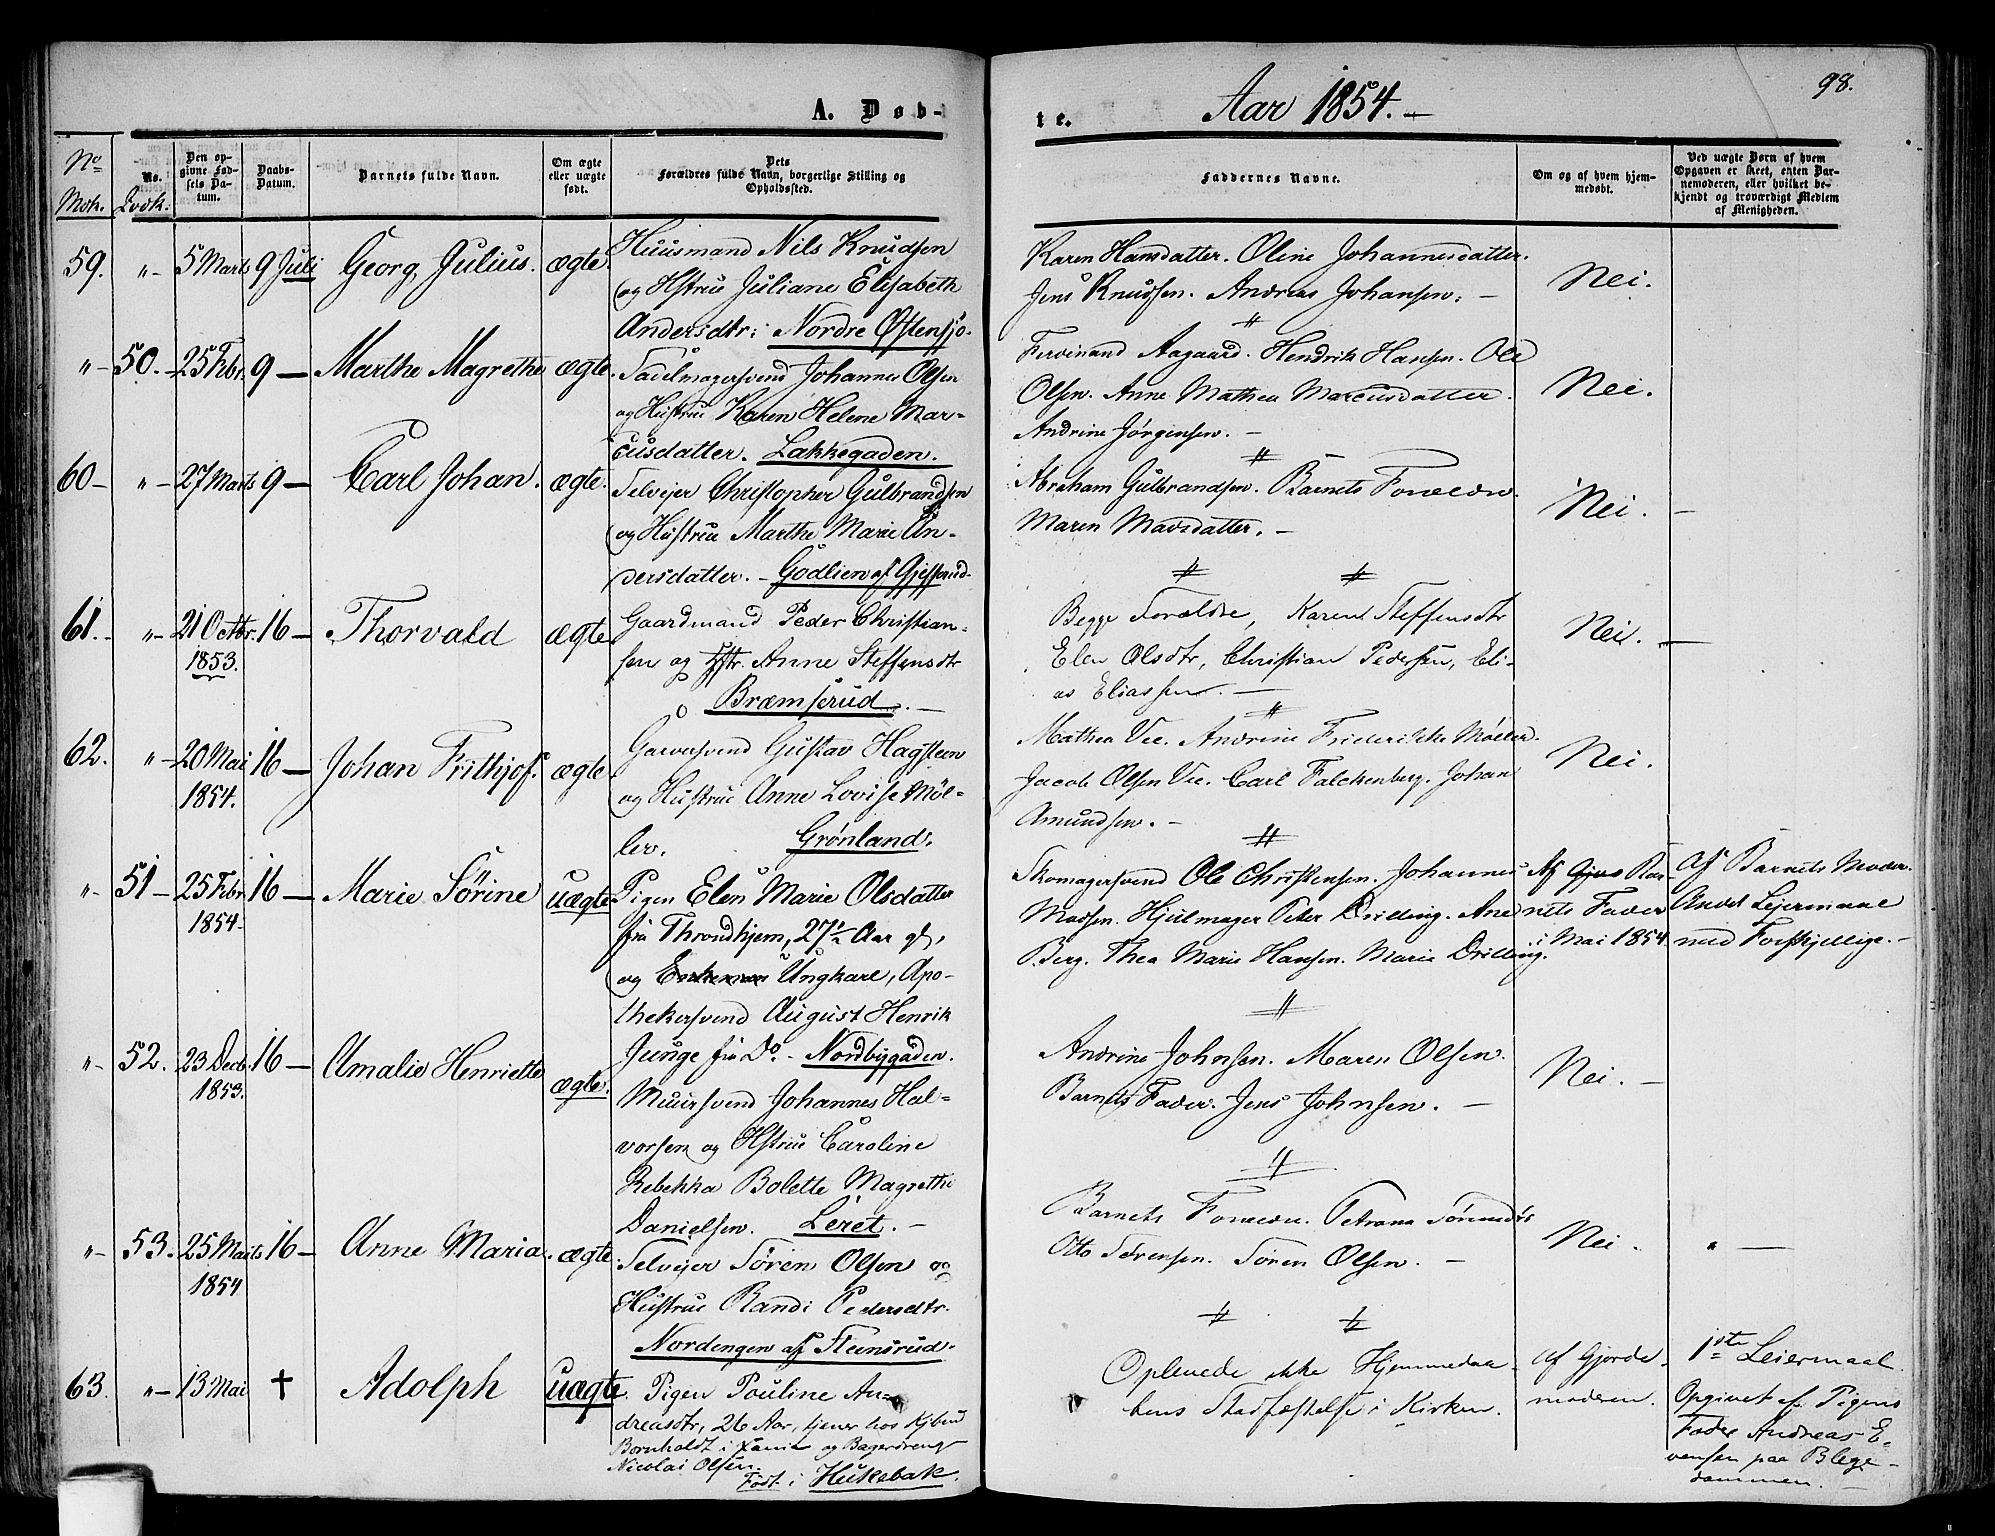 A. Døb-
te. Aar 1854.-
98.
No
Mdk.
No.
Qvdk.
Den op-
givne Fød-
sels Da-
tum.
Daabs-
Datum.
Barnets fulde Navn.
Om ægte
eller uægte
født.
Dets
Forældres fulde Navn, borgerlige Stilling og
Opholdssted.
Faddernes Navne.
Om og af hvem hjem-
medøbt.
Ved uægte Børn af hvem
Opgaven er skeet, enten Bar-
nemoderen, eller hvilket be-
kjendt og troværdigt Medlem
af Menigheden.
59. "- 5 Marts 9 Juli Georg Julius. ægte.
Huusmand Nils Knudsen
og Hstru Juliane Elisabeth
Andersdtr: Nordre Østensjo.
Karen Hansdatter. Oline Johannesdatter.
Jens Knudsen. Andreas Johansen. -
Nei.
"- 50. - 25 Febr. 9 - Marthe Magrethe ægte.
Sadelmagersvend Johannes Olsen
og Hustru Karen Helene Mar-
cusdatter. Lakkegaden.
Ferdinand Aagaard. Hendrik Hansen. Ole
Olsen. Anne Mathea Marcusdatter.
Andrine Jørgensen. -
Nei.
60 - "- 27 Marts 9 - Carl Johan. ægte.
Selveier Christopher Gulbrandsen
og Hustru Marthe Marie An-
dersdatter. - Godlien af
Abraham Gulbrandsen. Barnets Forældre.
Maren Madsdatter. -
Nei. -
61. - "- 21 Octbr. 1853. 16 - Thorvald ægte
Gaardmand Peder Christian-
sen og Hstr. Anne Steffensdtr
Bræmserud. -
Begge Forældre, Karen Steffensdtr
Elen Olsdtr, Christian Pedersen, Eli-
as Eliassen. -
Nei. -
62. "- 20 Mai 1854. 16 - Johan Frithjof. ægte
Garversvend Gustav Hagsteen
og Hustru Anne Lovise Møl-
ler. Grønland.
Mathea Vee. Andrine Friderikke Møller.
Jacob Olsen Vee. Carl Falckenberg. Johan
Amundsen. -
Nei.
"- 51 - 25 Febr. 1854. 16 - Marie Sørine uægte
Pigen Elen Marie Olsdatter
fra Throndhjem, 27½ Aar gl,
og Ungkarl, Apo-
thekersvend August Henrik
Junge fra Do. - Nordbygaden.
Skomagersvend Ole Christensen. Johannes
Madsen. Hjulmager Peter Drilling. Ane
Berg. Thea Marie Hansen. Marie Drilling.
Af Bar-
nets Fader
i Mai 1854.
Af Barnets Moder.
Andet Lejermaal
med Forskjellige. -
"- 52. 23 Decb. 1853. 16 - Amalie Henriette ægte.
Muursvend Johannes Hal-
vorsen og Hstru Caroline
Rebekka Bolette Magrethe
Danielsen. Leret. -
Andrine Johnsen. Maren Olsen.
Barnets Fader. Jens Johnsen. -
Nei. -
"- 53. 25 Marts 1854 16 - Anne Maria. ægte
Selveier Søren Olsen og
Hustru Randi Pedersdtr.
Nordengen af Steensrud.
Barnets Forældre. Petrana
Otto Sørensen. Søren Olsen. -
Nei. " -
63. "- 13 Mai † Adolph uægte.
Pigen Pouline An-
dreasdtr, 26 Aar, tjener hos Kjbmd
Bornholdt i og Bagerdreng
Nicolai Olsen.
Født i Hukebak.
Oplevede ikke Hjemmedaa-
bens Stadfæstelse i Kirken.
af Gjorde-
moderen.
1ste Leiermaal.
Opgivet af Pigens
Fader Andreas E-
vensen paa Blege-
dammen. -